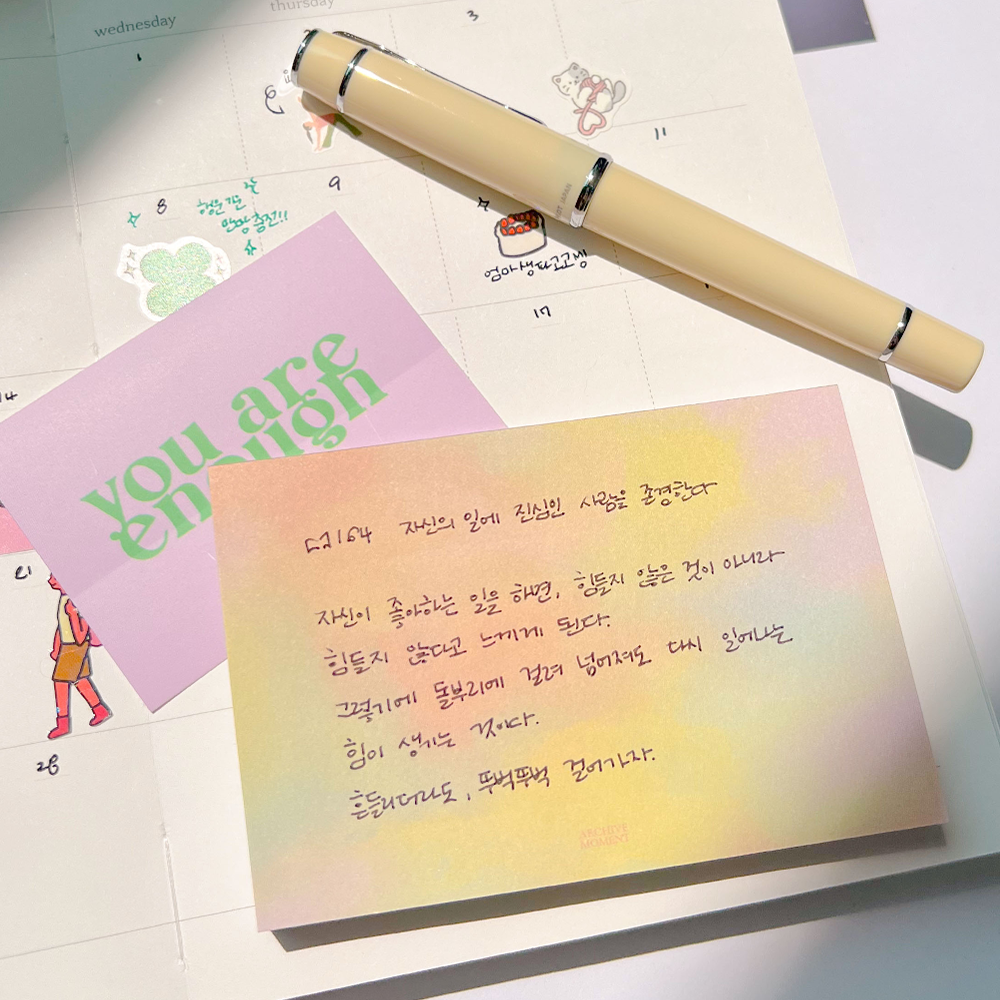 wednesday
thursday
1
3
8
행운 가득
만땅 충전!!
9
11
JAPAN
엄마 생파 고고씽
17
14
you are
enough
자신의 일에 진심인 사람을 존경한다
자신이 좋아하는 일을 하면, 힘들지 않은 것이 아니라
힘들지 않다고 느끼게 된다.
그렇기에 돌부리에 걸려 넘어져도 다시 일어나는
힘이 생기는 것이다.
흔들리더라도, 뚜벅뚜벅 걸어가자.
ARCHIVE
MOMENT
21
28